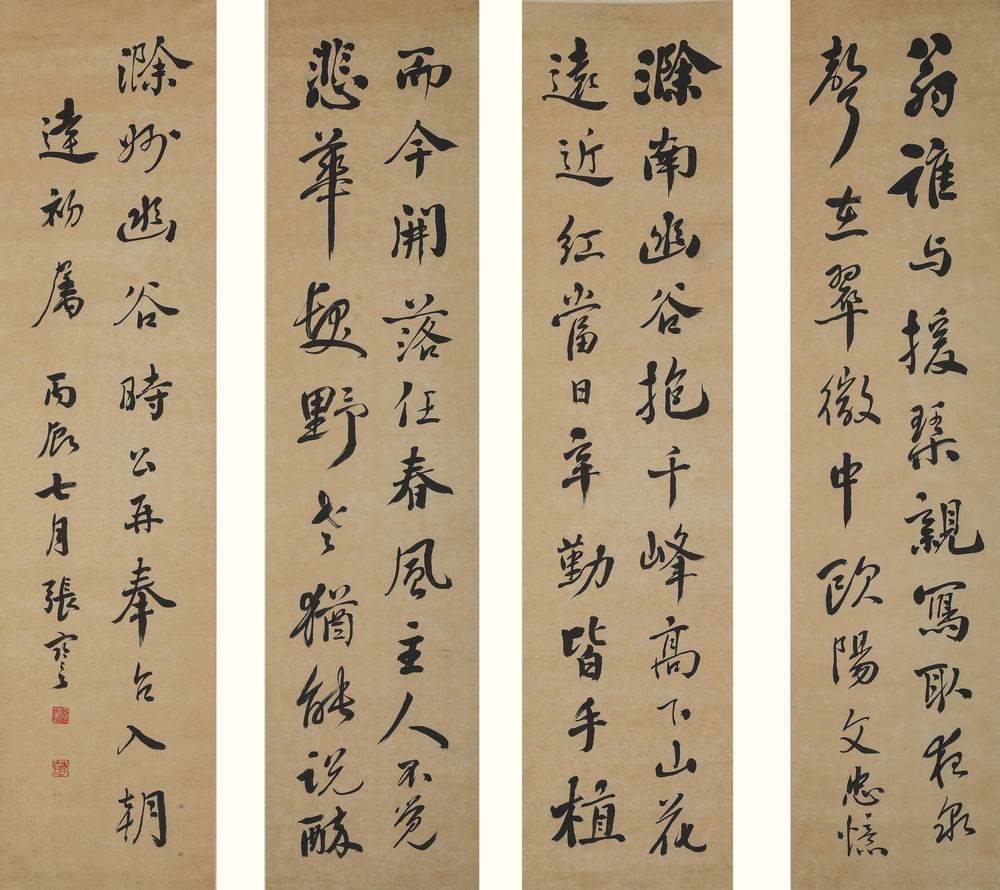 翁誰与援琴親寫取夜泉
聲在翠微中歐陽文忠憶
滁南幽谷抱千峰高下山花
遠近紅當日辛勤皆手植
而今開落任春風主人不覺
悲華髮野老猶能説醉
滁州幽谷時公再奉召入朝
達初屬 丙辰七月張謇